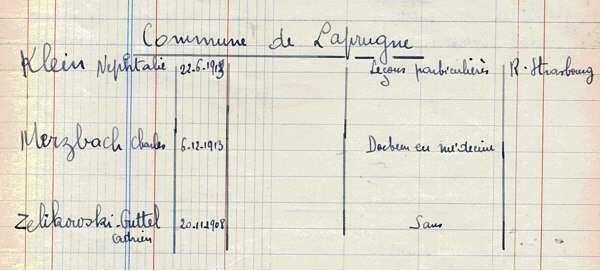 Commune de Laprugne
Klein Nephtalie 22-6-1913 Leçons particulières R. Strasbourg
Merzbach Charles 6-12-1913 Docteur en médecine
Zelikowski-Guttel 20-11-1908 Sans
(adrien)